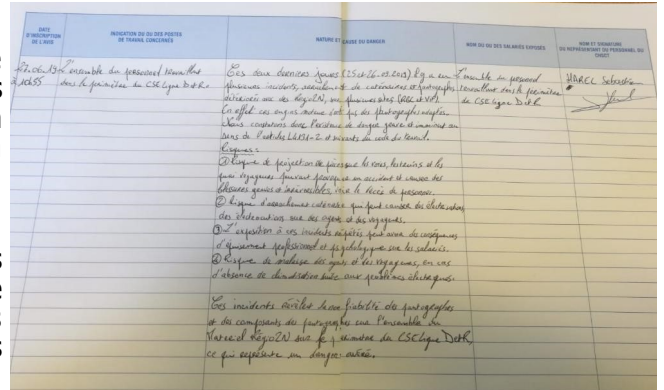 DATE
D'INSCRIPTION
DE L'AVIS
INDICATION DU OU DES POSTES
DE TRAVAIL CONCERNÉS
NATURE ET CAUSE DU DANGER
NOM DU OU DES SALARIÉS EXPOSÉS
NOM ET SIGNATURE
DU REPRÉSENTANT DU PERSONNEL DU
CHSCT
L'ensemble du personnel travaillant
dans le périmètre du CSE Ligne D et R.
Ces deux derniers jours (25 et 26.06.2019) il y a eu
plusieurs incidents, de caténaires et pantographes
détériorés sur des Régio2N, sur plusieurs sites
En effet ces engins moteur n'ont pas des pantographes adaptés.
Nous constatons donc l'existence de danger grave et imminent au
sens de l'article L4131-2 et suivants du code du travail.
Risques :
① Risque de projection de pièces sur les voies, les trains et les
quai voyageurs pouvant provoquer un accident et causer des
blessures graves et irréversibles voire le décès de personnes.
② Risque d'arrachement caténaire qui peut causer des électrisations,
des électrocutions sur des agents et des voyageurs.
③ L'exposition à ces incidents répétés peut avoir des conséquences
d'épuisement professionnel et psychologique sur les salariés.
④ Risque de malaise des agents et des voyageurs, en cas
d'absence de climatisation suite aux problèmes électriques.
Ces incidents révèlent la non fiabilité des pantographes
et des composants des pantographes sur l'ensemble du
Matériel Régio2N sur le périmètre du CSE Ligne D et R,
ce qui représente un danger avéré.
L'ensemble du personnel
travaillant dans le périmètre
du CSE Ligne D et R.
HAREL Sébastien